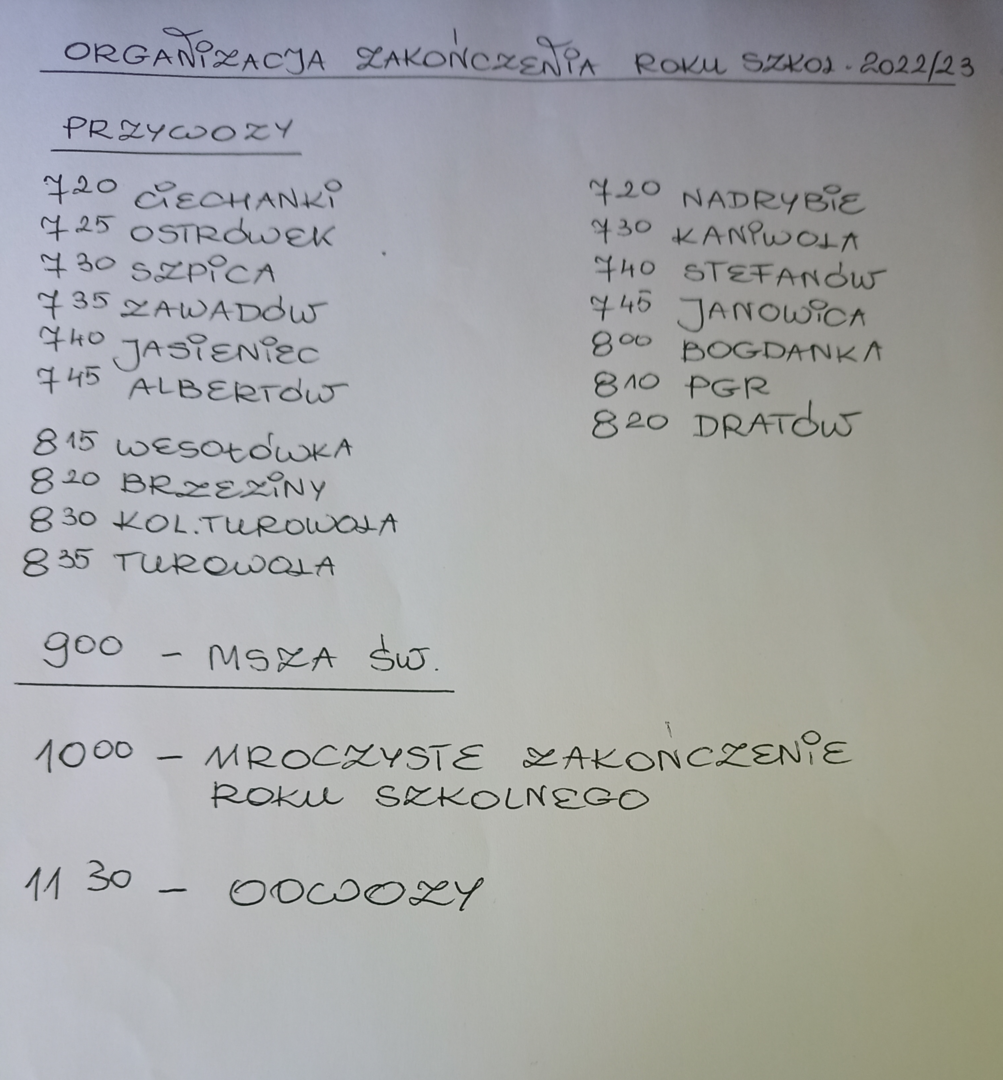 ORGANIZACJA ZAKOŃCZENIA ROKU SZKOŁ. 2022/23
PRZYWOZY
7 20 CIECHANKI
7 25 OSTRÓWEK
7 30 SZPICA
7 35 ZAWADÓW
7 40 JASIENIEC
7 45 ALBERTÓW
8 15 WESOŁÓWKA
8 20 BRZEZINY
8 30 KOL. TUROWOLA
8 35 TUROWOLA
7 20 NADRYBIE
7 30 KANIWOLA
7 40 STEFANÓW
7 45 JANOWICA
8 00 BOGDANKA
8 10 PGR
8 20 DRATÓW
9 00 - MSZA ŚW.
10 00 - UROCZYSTE ZAKOŃCZENIE
ROKU SZKOLNEGO
11 30 - ODWOZY